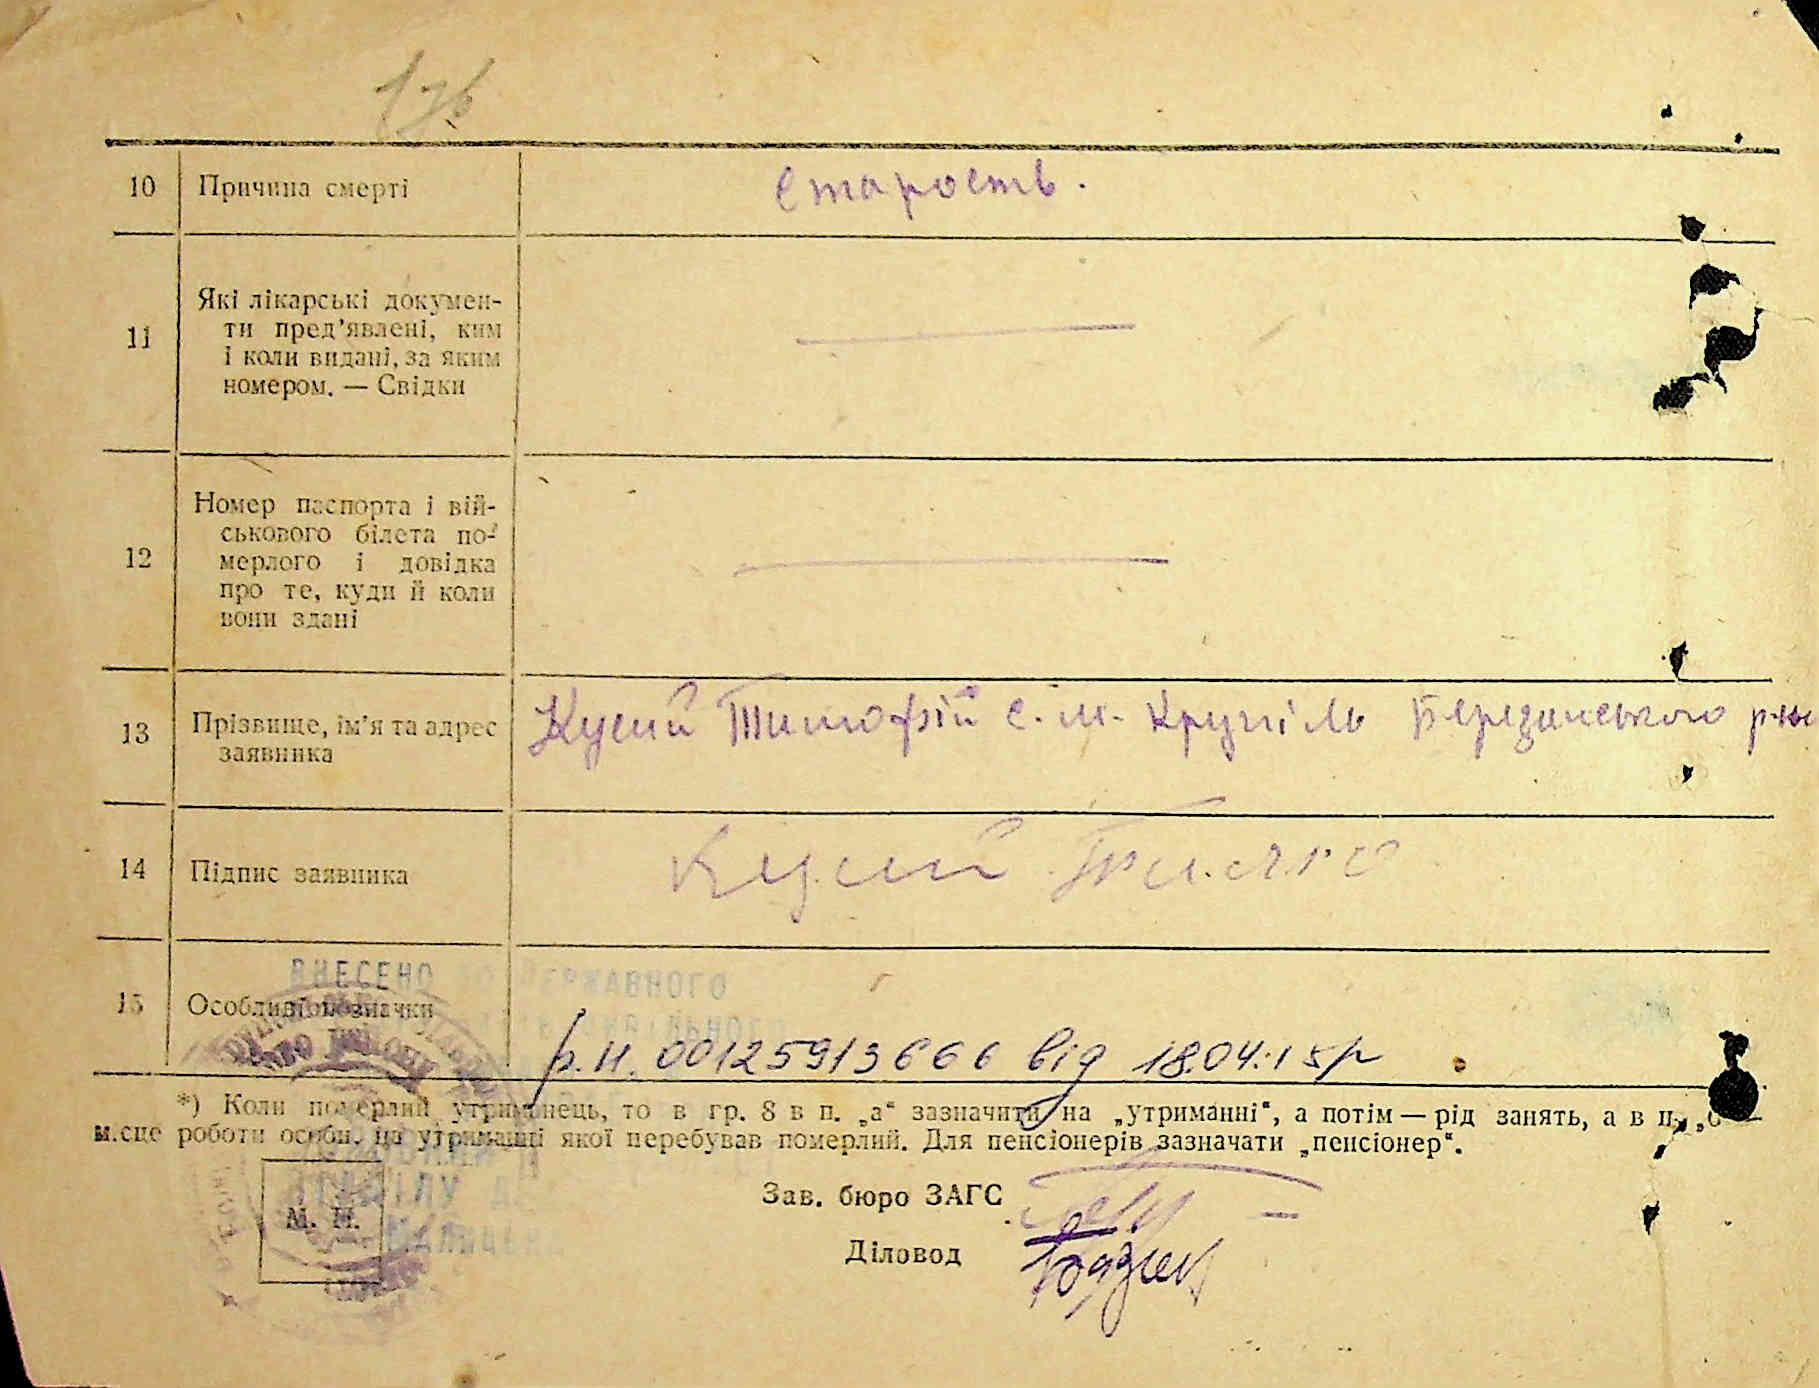 10 Причина смерті Старость.
11 Які лікарські докумен-
ти пред'явлені, ким
і коли видані, за яким
номером. — Свідки
12 Номер паспорта і вій-
ськового білета по-
мерлого і довідка
про те, куди й коли
вони здані
13 Прізвище, ім'я та адрес Кусий Тимофій с. м. Крупіль Березанського р-ну
заявника
14 Підпис заявника Кусий
ВНЕСЕНО ДО ДЕРЖАВНОГО
15 Особливі позначки
р.н. 00125913666 від 18.04.15р
*) Коли померлий утриманець, то в гр. 8 в п. „а“ зазначити на „утриманні“, а потім — рід занять, а в п.
місце роботи особи, на утриманні якої перебував померлий. Для пенсіонерів зазначати „пенсіонер“.
Зав. бюро ЗАГС
М. П.
Діловод